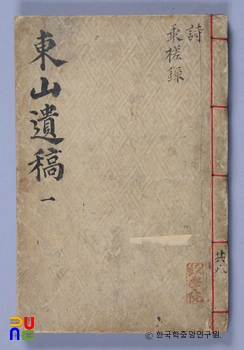 東山遺稿 一
詩
乘槎錄
共八
PUNC
ⓒ 한국학중앙연구원